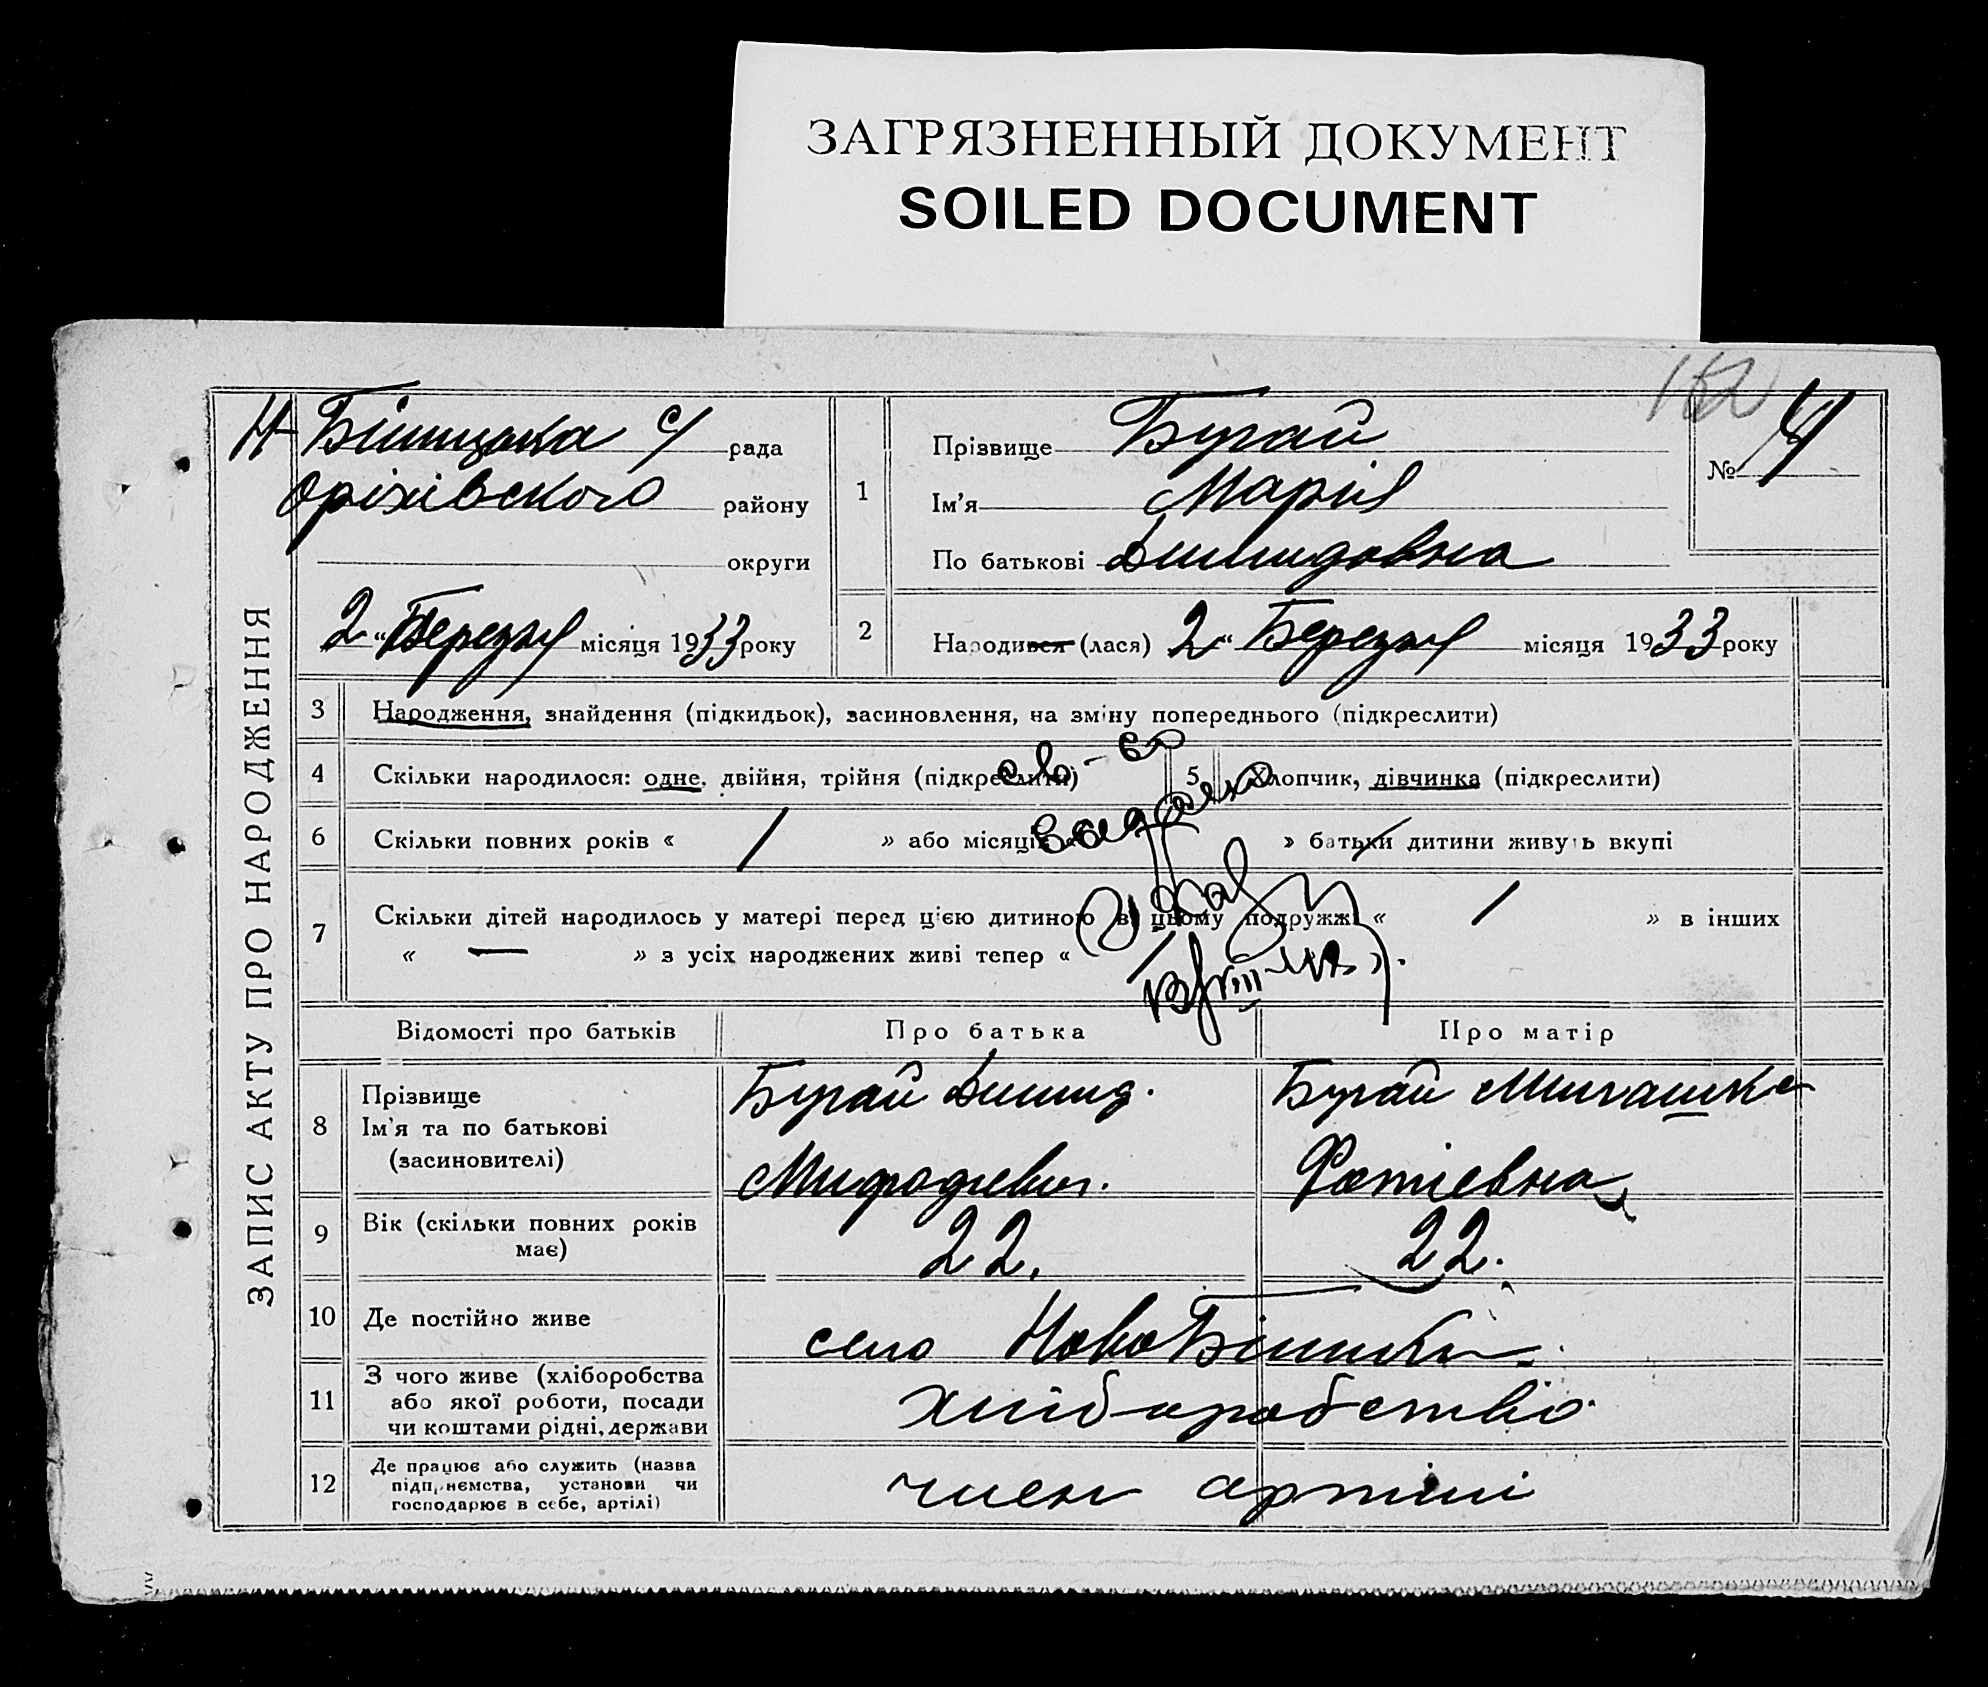 ЗАГРЯЗНЕННЫЙ ДОКУМЕНТ
SOILED DOCUMENT
ЗАПИС АКТУ ПРО НАРОДЖЕННЯ
Н-Білицька с/ рада
Оріхівского району
округи
2 „Березня місяця 1933 року
1
Прізвище Бугай
Ім’я Марія
По батькові
№
2
Народився (лася) 2 „ Березня місяця 1933 року
3 Народження, знайдення (підкидьок), засиновлення, на зміну попереднього (підкреслити)
4 Скільки народилося: одне, двійня, трійня (підкреслити)
5 Хлопчик, дівчинка (підкреслити)
св-во
6 Скільки повних років « 1 » або місяців « » батьки дитини живуть вкупі
7 Скільки дітей народилось у матері перед цією дитиною в цьому подружжі « 1 » в інших
« — » з усіх народжених живі тепер « 1
Відомості про батьків Про батька Про матір
8 Прізвище
Ім’я та по батькові
(засиновителі)
Бугай
Бугай
Фотіевна
9 Вік (скільки повних років має)
22.
22.
10 Де постійно живе
село
11 З чого живе (хліборобства
або якої роботи, посади
чи коштами рідні, держави
хліборобство
12 Де працює або служить (назва
підприємства, установи чи
господарює в себе, артілі)
член артілі